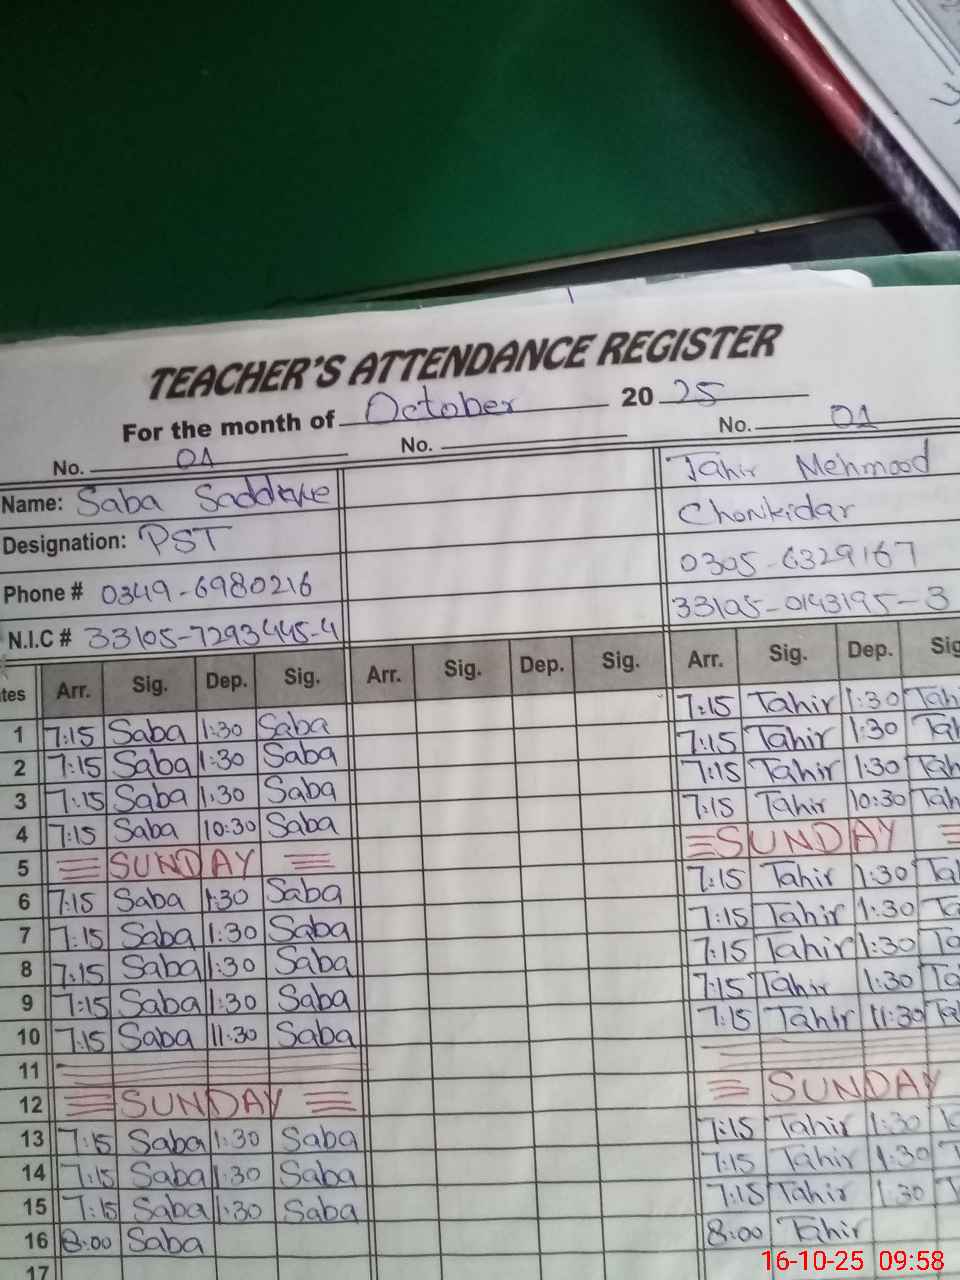 TEACHER'S ATTENDANCE REGISTER
For the month of October 2025
No. 01 No. No. 01
Name: Saba Tahir Mehmood
Designation: PST Chonkidar
Phone # 0349-6980216 0305-6329167
N.I.C # 33105-7293445-4 33105-0143195-3
tes Arr. Sig. Dep. Sig. Arr. Sig. Dep. Sig. Arr. Sig. Dep. Sig
1 7:15 Saba 1:30 Saba 7:15 Tahir 1:30 Tahi
2 7:15 Saba 1:30 Saba 7:15 Tahir 1:30 Tah
3 7:15 Saba 1:30 Saba 7:15 Tahir 1:30 Tah
4 7:15 Saba 10:30 Saba 7:15 Tahir 10:30 Tah
5 SUNDAY SUNDAY
6 7:15 Saba 1:30 Saba 7:15 Tahir 1:30 Ta
7 7:15 Saba 1:30 Saba 7:15 Tahir 1:30 Ta
8 7:15 Saba 1:30 Saba 7:15 Tahir 1:30 Ta
9 7:15 Saba 1:30 Saba 7:15 Tahir 1:30 Ta
10 7:15 Saba 11:30 Saba 7:15 Tahir 11:30 Ta
11
12 SUNDAY SUNDAY
13 7:15 Saba 1:30 Saba 7:15 Tahir 1:30
14 7:15 Saba 1:30 Saba 7:15 Tahir 1:30 T
15 7:15 Saba 1:30 Saba 7:15 Tahir 1:30 T
16 8:00 Saba 8:00 Tahir
17
16-10-25 09:58